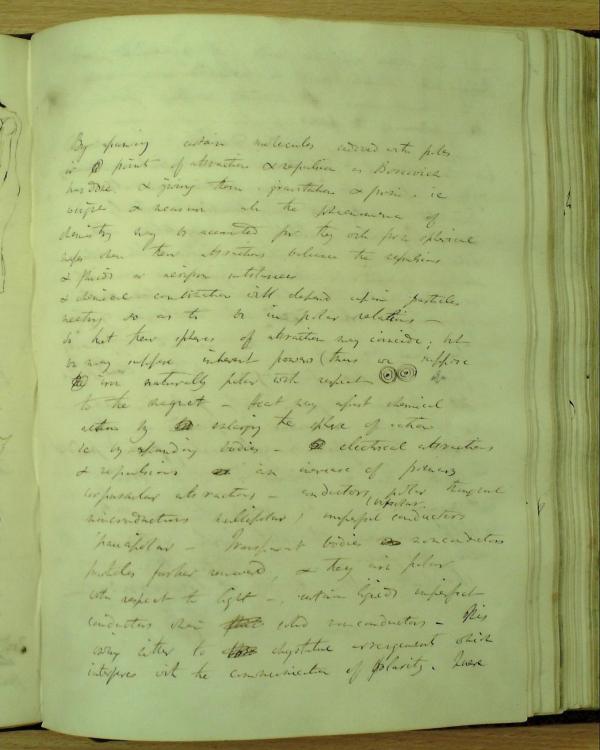 By assuming certain molecules endued with poles
or points of attraction & repulsion as Boscovich
has done & giving them gravitation & form i e
weight & measure all the phenomena of
chemistry may be accounted for they will form spherical
masses when their attractions balance the repulsions
& fluids or aeriform substances
& chemical combination will depend upon particles
meeting so as to be in polar relations –
so that their spheres of attraction may coincide; but
we may suppose inherent powers thus we suppose
iron naturally polar with respect
to the magnet – Heat may assist chemical
action by enlarging the sphere of action
ie by expanding bodies – electrical attractions
& repulsions an increase of primary
corpuscular attractions – conductors polar
nonconductors imperfect conductors
Transparent bodies nonconductors
particles farther removed, & they are polar
with respect to light –, certain liquids imperfect
conductors when solid nonconductors – This
owing either to chrystaline arrangement which
interferes with the communication of polarity.